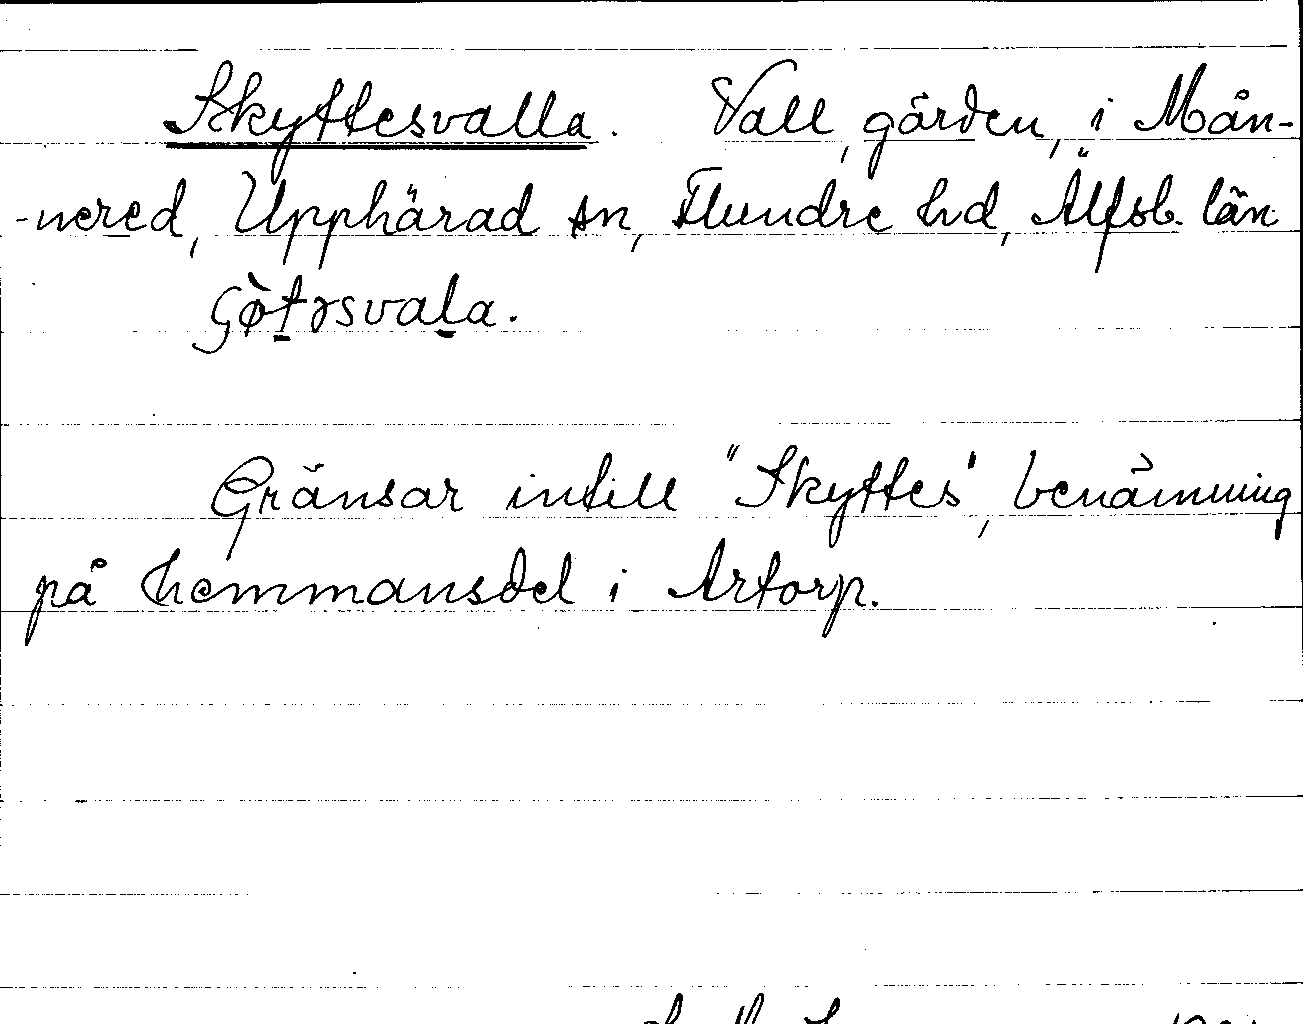 Skyttesvalla. Vall, gärden, i Mån-
-nered, Upphärad sn, Flundre hd, Älfsb. län
ʂø̀tɜsvala.
Gränsar intill "Skyttes", benämning
på hemmansdel i Artorp.